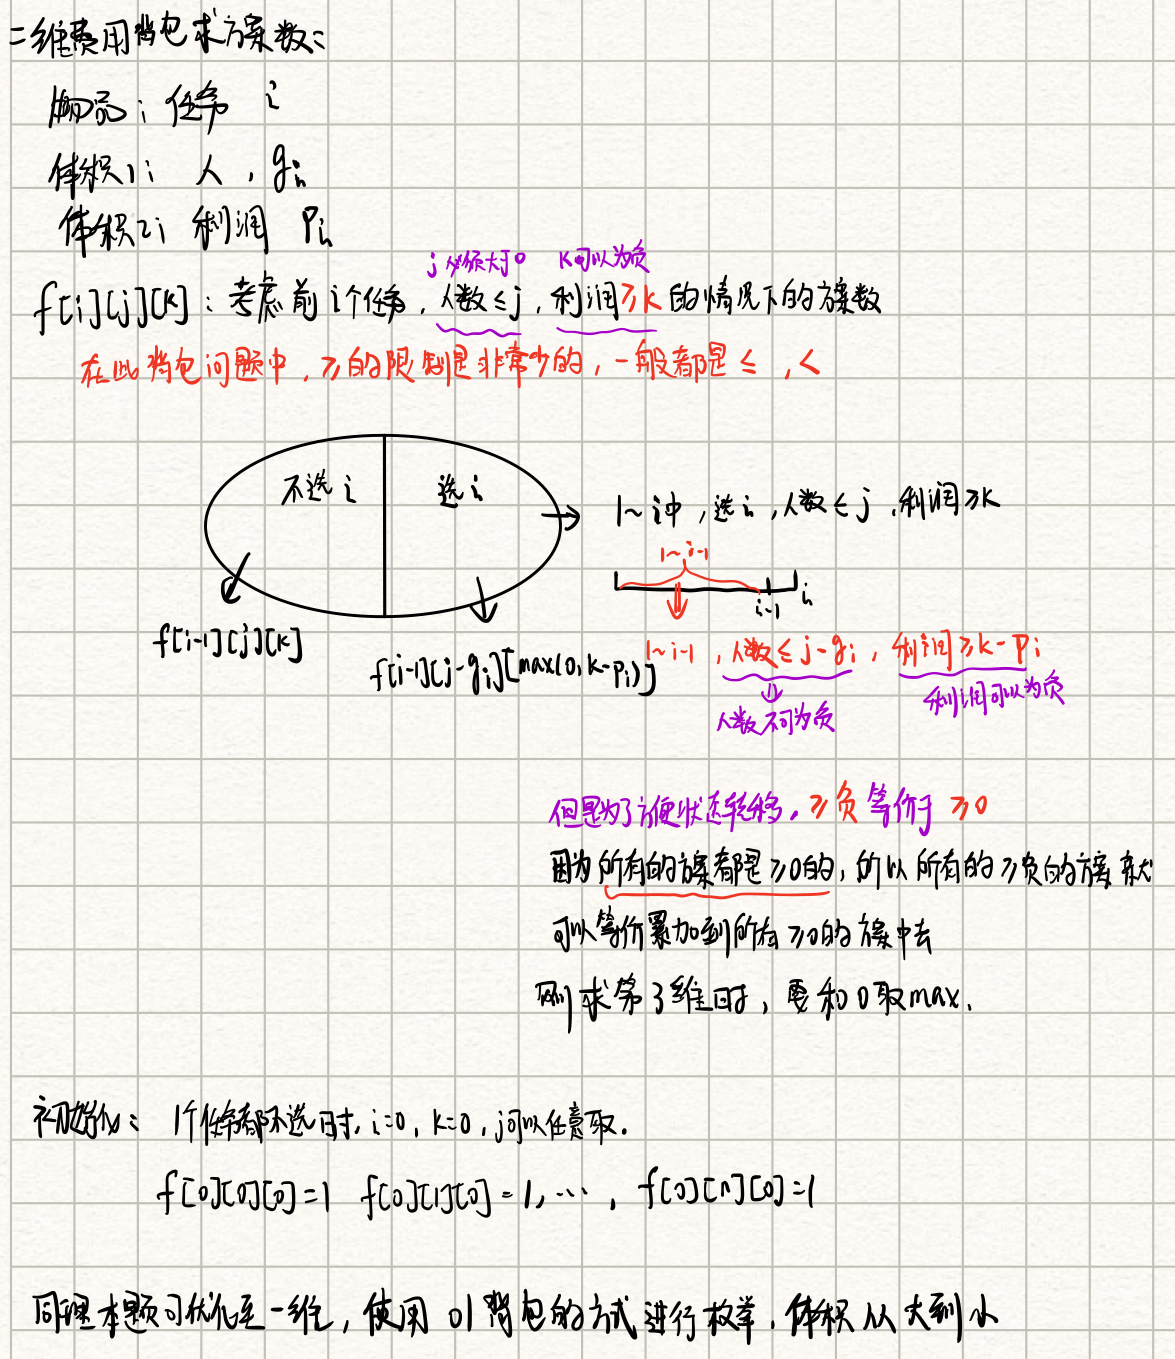 二维费用背包求方案数:
物品: 任务 i
体积1: 人, gi
体积2: 利润 Pi
j必须大于0 K可以为负
f[i][j][k]: 考虑前i个任务, 人数≤j, 利润≥k的情况下的方案数
在此背包问题中, ≥的限制是非常少的, 一般都是≤, <
不选i 选i
1~i中, 选i, 人数≤j, 利润≥k
1~i-1
i-1 i
f[i-1][j][k]
f[i-1][j-gi][max(0,k-pi)]
1~i-1, 人数≤j-gi, 利润≥k-Pi
人数不可为负
利润可以为负
但是为了方便状态转移, ≥负等价于≥0
因为所有的方案都是≥0的, 所以所有的≥负的方案就
可以等价累加到所有≥0的方案中去
则求第3维时, 要和0取max.
初始化: 1个任务都不选时, i=0, k=0, j可以任意取.
f[0][0][0]=1 f[0][1][0]=1, ..., f[0][n][0]=1
同理本题可优化至一维, 使用01背包的方式进行枚举, 体积从大到小